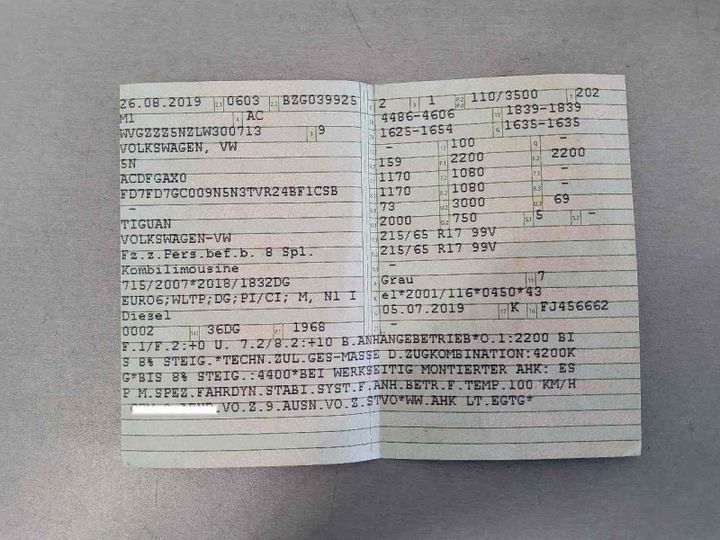 26.08.2019 0603 BZG039925
M1 AC
WVGZZZ5NZLW300713 9
VOLKSWAGEN, VW
5N
ACDFGAX0
FD7FD7GC009N5N3TVR24BF1CSB
-
TIGUAN
VOLKSWAGEN-VW
Fz.z.Pers.bef.b. 8 Spl.
Kombilimousine
715/2007*2018/1832DG
EURO6;WLTP;DG;PI/CI; M, N1 I
Diesel
0002 36DG 1968
2 1 110/3500 202
4486-4606 1839-1839
1625-1654 1635-1635
- 100 -
159 2200 2200
1170 1080 -
1170 1080 -
73 3000 69
2000 750 5 -
215/65 R17 99V
215/65 R17 99V
-
Grau 7
e1*2001/116*0450*43
05.07.2019 K FJ456662
-
F.1/F.2:+0 U. 7.2/8.2:+10 B.ANHÄNGEBETRIEB*O.1:2200 BI
S 8% STEIG.*TECHN.ZUL.GES-MASSE D.ZUGKOMBINATION:4200K
G*BIS 8% STEIG.:4400*BEI WERKSEITIG MONTIERTER AHK: ES
P M.SPEZ.FAHRDYN.STABI.SYST.F.ANH.BETR.F.TEMP.100 KM/H
.VO.Z.9.AUSN.VO.Z.STVO*WW.AHK LT.EGTG*